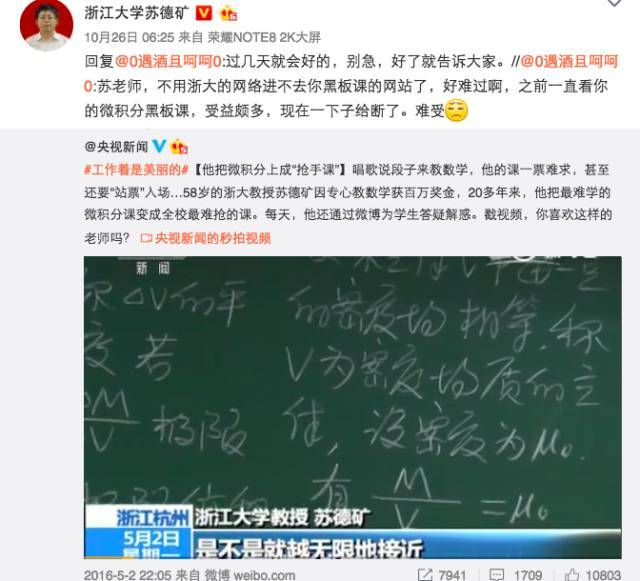 浙江大学苏德矿
10月26日 06:25 来自 荣耀NOTE8 2K大屏
回复@0遇酒且呵呵0:过几天就会好的，别急，好了就告诉大家。//@0遇酒且呵呵
0:苏老师，不用浙大的网络进不去你黑板课的网站了，好难过啊，之前一直看你
的微积分黑板课，受益颇多，现在一下子给断了。难受
@央视新闻
#工作着是美丽的#【他把微积分上成“抢手课”】唱歌说段子来教数学，他的课一票难求，甚至
还要“站票”入场...58岁的浙大教授苏德矿因专心教数学获百万奖金，20多年来，他把最难学的
微积分课变成全校最难抢的课。每天，他还通过微博为学生答疑解惑。戳视频，你喜欢这样的
老师吗？ 央视新闻的秒拍视频
新闻
ΔV的平
的密度均相等，称
度 若
V为密度均质的立
M/V 极限
体，设密度为μ₀.
有 M/V = μ₀
浙江杭州 浙江大学教授 苏德矿
5月2日
星期一 是不是就越无限地接近
2016-5-2 22:05 来自 微博 weibo.com 7941 1709 10803